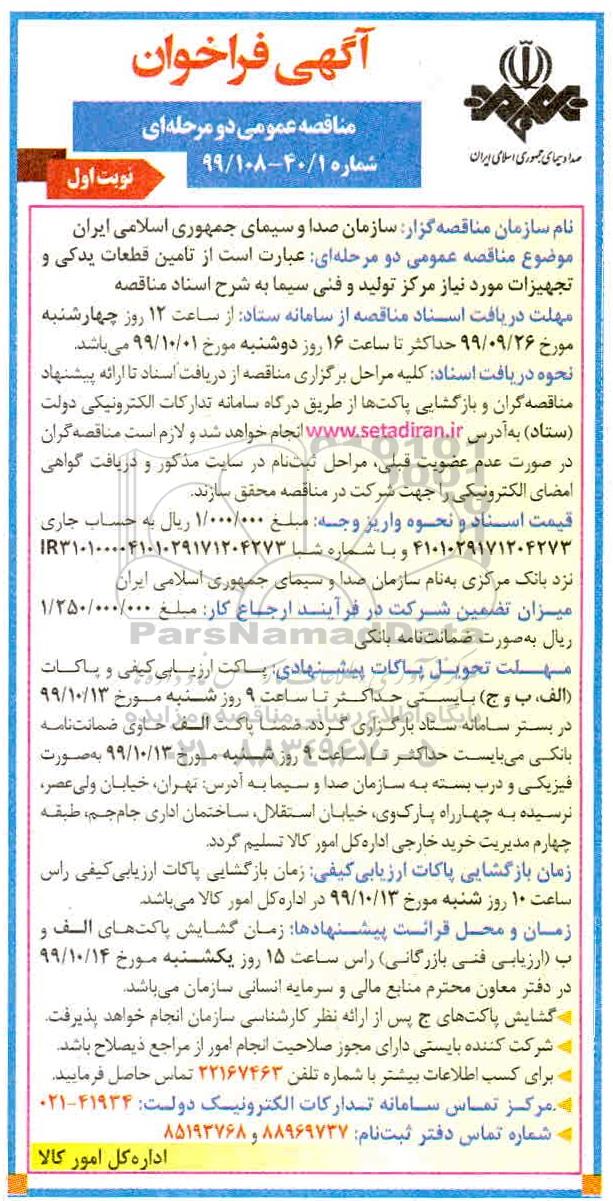 آگهی فراخوان
مناقصه عمومی دو مرحله‌ای
شماره ۴۰/۱-۹۹/۱۰۸
نوبت اول
صدا و سیمای جمهوری اسلامی ایران
نام سازمان مناقصه‌گزار: سازمان صدا و سیمای جمهوری اسلامی ایران
موضوع مناقصه عمومی دو مرحله‌ای: عبارت است از تامین قطعات یدکی و
تجهیزات مورد نیاز مرکز تولید و فنی سیما به شرح اسناد مناقصه
مهلت دریافت اسناد مناقصه از سامانه ستاد: از ساعت ۱۲ روز چهارشنبه
مورخ ۹۹/۰۹/۲۶ حداکثر تا ساعت ۱۶ روز دوشنبه مورخ ۹۹/۱۰/۰۱ می‌باشد.
نحوه دریافت اسناد: کلیه مراحل برگزاری مناقصه از دریافت اسناد تا ارائه پیشنهاد
مناقصه‌گران و بازگشایی پاکت‌ها از طریق درگاه سامانه تدارکات الکترونیکی دولت
(ستاد) به‌آدرس www.setadiran.ir انجام خواهد شد و لازم است مناقصه‌گران
در صورت عدم عضویت قبلی، مراحل ثبت‌نام در سایت مذکور و دریافت گواهی
امضای الکترونیکی را جهت شرکت در مناقصه محقق سازند.
قیمت اسناد و نحوه واریز وجه: مبلغ ۱/۰۰۰/۰۰۰ ریال به حساب جاری
۴۱۰۱۰۲۹۱۷۱۲۰۴۲۷۳ و با شماره شبا IR۳۱۰۱۰۰۰۰۴۱۰۱۰۲۹۱۷۱۲۰۴۲۷۳
نزد بانک مرکزی به‌نام سازمان صدا و سیمای جمهوری اسلامی ایران
میزان تضمین شرکت در فرآیند ارجاع کار: مبلغ ۱/۲۵۰/۰۰۰/۰۰۰
ریال به‌صورت ضمانت‌نامه بانکی
ParsNamadData
مهلت تحویل پاکات پیشنهادی: پاکت ارزیابی‌کیفی و پاکات
(الف، ب و ج) بایستی حداکثر تا ساعت ۹ روز شنبه مورخ ۹۹/۱۰/۱۳
پایگاه اطلاع رسانی مناقصه و مزایده
در بستر سامانه ستاد بارگزاری گردد. ضمناً پاکت الف حاوی ضمانت‌نامه
۰۲۱-۸۸۳۴۹۶۷۰-۵
بانکی می‌بایست حداکثر تا ساعت ۹ روز شنبه مورخ ۹۹/۱۰/۱۳ به‌صورت
فیزیکی و درب بسته به سازمان صدا و سیما به آدرس: تهران، خیابان ولی‌عصر،
نرسیده به چهارراه پارک‌وی، خیابان استقلال، ساختمان اداری جام‌جم، طبقه
چهارم مدیریت خرید خارجی اداره‌کل امور کالا تسلیم گردد.
زمان بازگشایی پاکات ارزیابی‌کیفی: زمان بازگشایی پاکات ارزیابی‌کیفی راس
ساعت ۱۰ روز شنبه مورخ ۹۹/۱۰/۱۳ در اداره‌کل امور کالا می‌باشد.
زمان و محل قرائت پیشنهادها: زمان گشایش پاکت‌های الف و
ب (ارزیابی فنی بازرگانی) راس ساعت ۱۵ روز یکشنبه مورخ ۹۹/۱۰/۱۴
در دفتر معاون محترم منابع مالی و سرمایه انسانی سازمان می‌باشد.
گشایش پاکت‌های ج پس از ارائه نظر کارشناسی سازمان انجام خواهد پذیرفت.
شرکت کننده بایستی دارای مجوز صلاحیت انجام امور از مراجع ذیصلاح باشد.
برای کسب اطلاعات بیشتر با شماره تلفن ۲۲۱۶۷۴۶۳ تماس حاصل فرمایید.
مرکز تماس سامانه تدارکات الکترونیک دولت: ۴۱۹۳۴-۰۲۱
شماره تماس دفتر ثبت‌نام: ۸۸۹۶۹۷۳۷ و ۸۵۱۹۳۷۶۸
اداره‌کل امور کالا